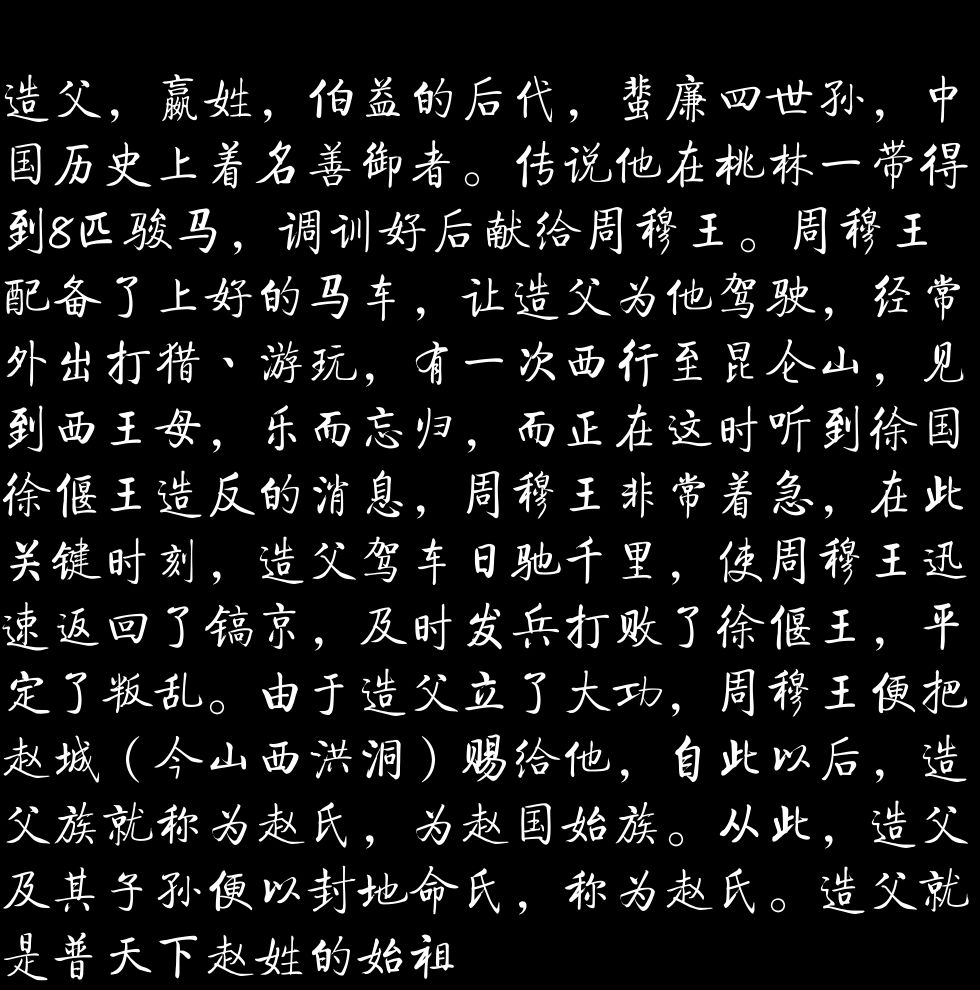 造父，嬴姓，伯益的后代，蜚廉四世孙，中
国历史上着名善御者。传说他在桃林一带得
到8匹骏马，调训好后献给周穆王。周穆王
配备了上好的马车，让造父为他驾驶，经常
外出打猎、游玩，有一次西行至昆仑山，见
到西王母，乐而忘归，而正在这时听到徐国
徐偃王造反的消息，周穆王非常着急，在此
关键时刻，造父驾车日驰千里，使周穆王迅
速返回了镐京，及时发兵打败了徐偃王，平
定了叛乱。由于造父立了大功，周穆王便把
赵城（今山西洪洞）赐给他，自此以后，造
父族就称为赵氏，为赵国始族。从此，造父
及其子孙便以封地命氏，称为赵氏。造父就
是普天下赵姓的始祖